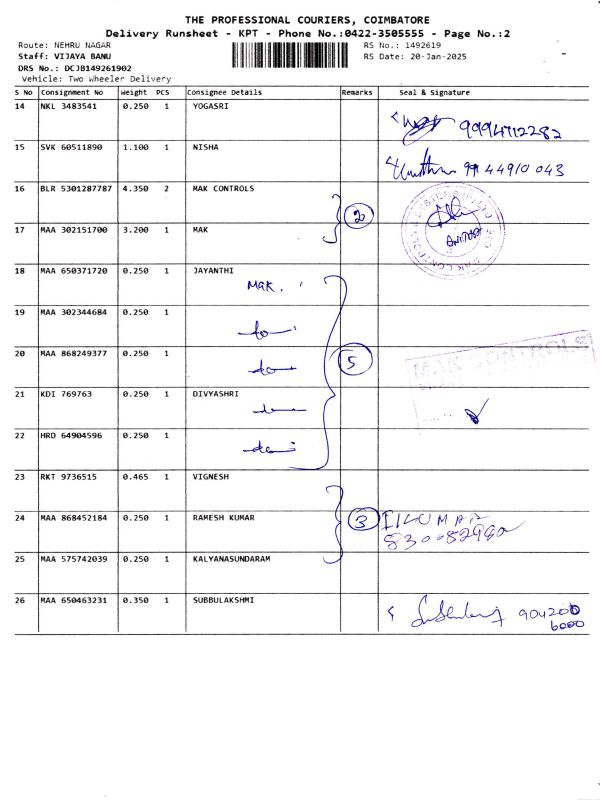 THE PROFESSIONAL COURIERS, COIMBATORE
Delivery Runsheet - KPT - Phone No.:0422-3505555 - Page No.:2
Route: NEHRU NAGAR RS No.: 1492619
Staff: VIJAYA BANU RS Date: 20-Jan-2025
DRS No.: DCJB149261902
Vehicle: Two Wheeler Delivery
S No Consignment No Weight PCS Consignee Details Remarks Seal & Signature
14 NKL 3483541 0.250 1 YOGASRI
9994712282
15 SVK 60511890 1.100 1 NISHA
99 44910 043
16 BLR 5301287787 4.350 2 MAK CONTROLS
2
17 MAA 302151700 3.200 1 MAK
18 MAA 650371720 0.250 1 JAYANTHI
Mak.
19 MAA 302344684 0.250 1
20 MAA 868249377 0.250 1
5 MAK CONTROLS
21 KDI 769763 0.250 1 DIVYASHRI
22 HRD 64904596 0.250 1
23 RKT 9736515 0.465 1 VIGNESH
24 MAA 868452184 0.250 1 RAMESH KUMAR
3
25 MAA 575742039 0.250 1 KALYANASUNDARAM
26 MAA 650463231 0.350 1 SUBBULAKSHMI
904200
6000